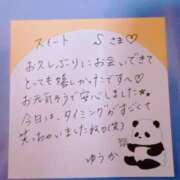 スイート Sさま♡
お久しぶりにお会いできて
とっても嬉しかったです〜♡
お元気そうで安心しました★
今日は、タイミングがすごくて
笑っちゃいましたね(笑)
ゆうか